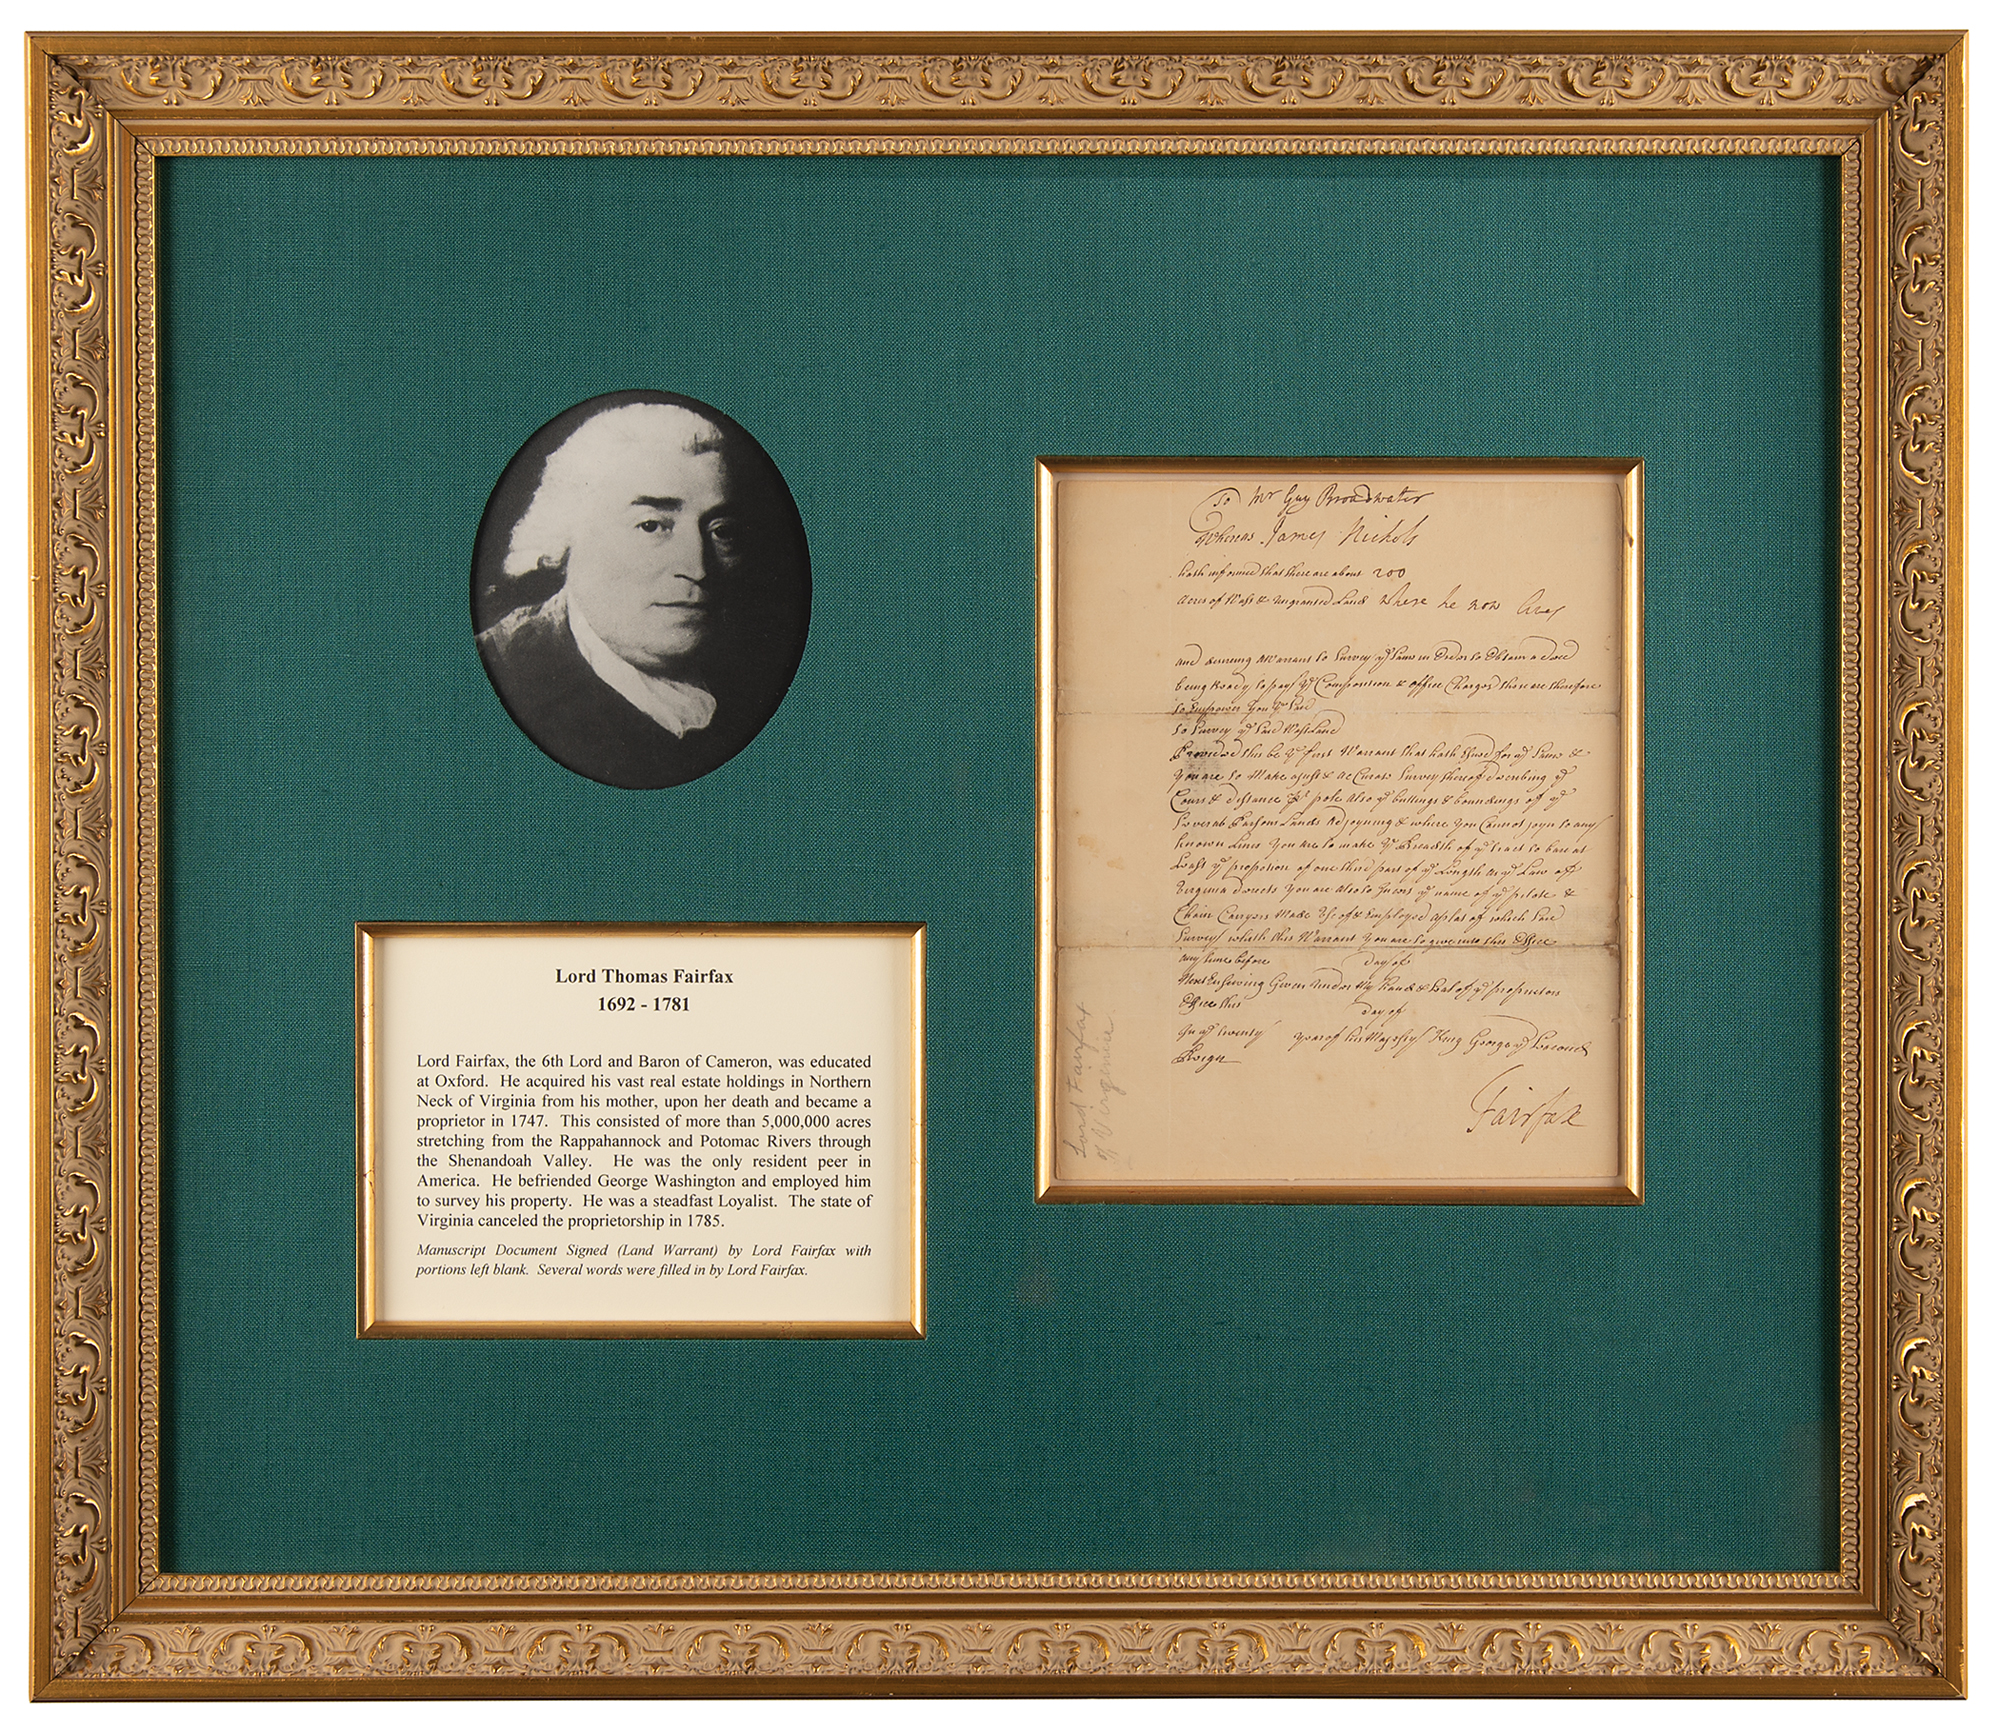 Lord Thomas Fairfax
1692 - 1781
Lord Fairfax, the 6th Lord and Baron of Cameron, was educated
at Oxford. He acquired his vast real estate holdings in Northern
Neck of Virginia from his mother, upon her death and became a
proprietor in 1747. This consisted of more than 5,000,000 acres
stretching from the Rappahannock and Potomac Rivers through
the Shenandoah Valley. He was the only resident peer in
America. He befriended George Washington and employed him
to survey his property. He was a steadfast Loyalist. The state of
Virginia canceled the proprietorship in 1785.
Manuscript Document Signed (Land Warrant) by Lord Fairfax with
portions left blank. Several words were filled in by Lord Fairfax.
To Mr Guy Broadwater
Whereas James Nichols
hath informed that there are about 200
Acres of Wast & ungranted Land where he now lives
and a Warrant to Survey ye Same in Order to Obtain a deed
being Ready to pay ye Composition & office Charges these are therefore
to Empower You ye Said
to Survey ye Said Wast Land
Provided this be ye first Warrant that hath for ye Same &
You are to Make a just & accurate Survey thereof describing ye
Course & distance pole Also ye buttings & boundings of ye
Several Persons Lands Adjoyning & where You Cannot joyn to any
known Lines You are to make ye Breadth of ye tract to bare at
Least ye proportion of one third part of ye Length as ye Law of
Virginia directs You are also to Insert ye name of ye pilote &
Chain Carryers Made Use of & Employed a plat of which Said
Survey with this Warrant You are to give into this Office
any time before day of
Next Ensueing Given under My Hand & Seal of ye proprietors
Office this day of
In ye twenty year of his Majesty King George ye Second
Reign
Fairfax
Lord Fairfax
of Virginia.